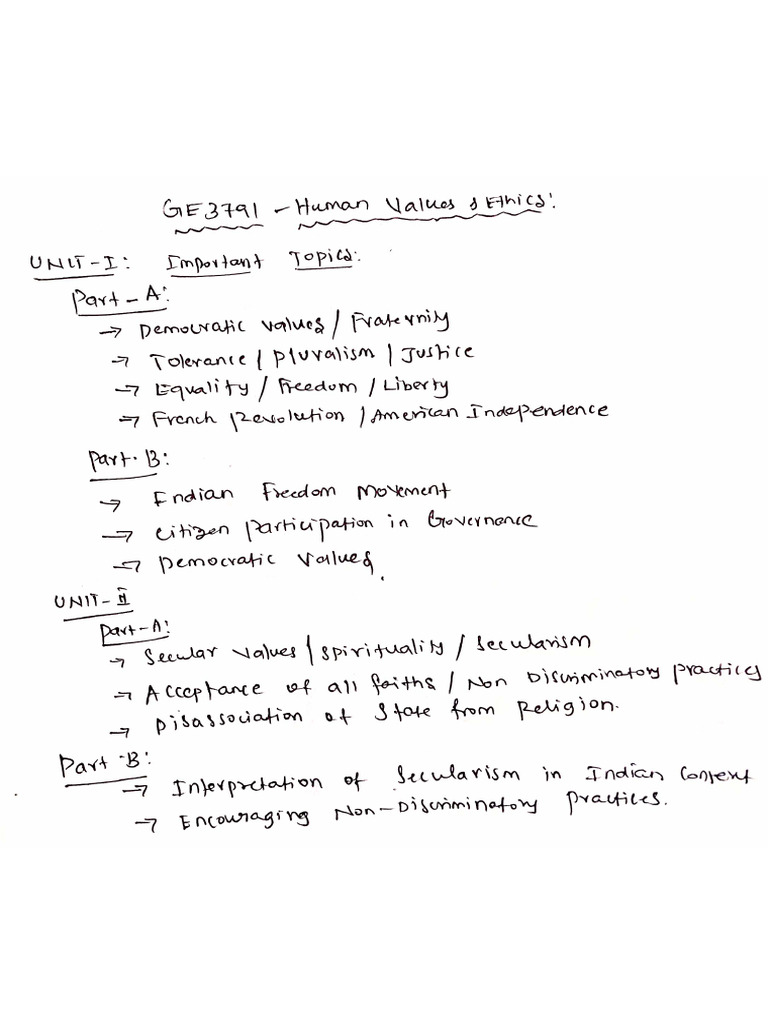 GE3791 - Human Values & Ethics:
UNIT-I: Important Topics:
Part-A:
→ Democratic values / Fraternity
→ Tolerance / Pluralism / Justice
→ Equality / Freedom / Liberty
→ French Revolution / American Independence
Part-B:
→ Indian Freedom Movement
→ Citizen Participation in Governance
→ Democratic Values.
UNIT-II
Part-A:
→ Secular Values / Spirituality / Secularism
→ Acceptance of all faiths / Non Discriminatory practices
→ Disassociation of State from Religion.
Part-B:
→ Interpretation of Secularism in Indian Context
→ Encouraging Non-Discriminatory practices.